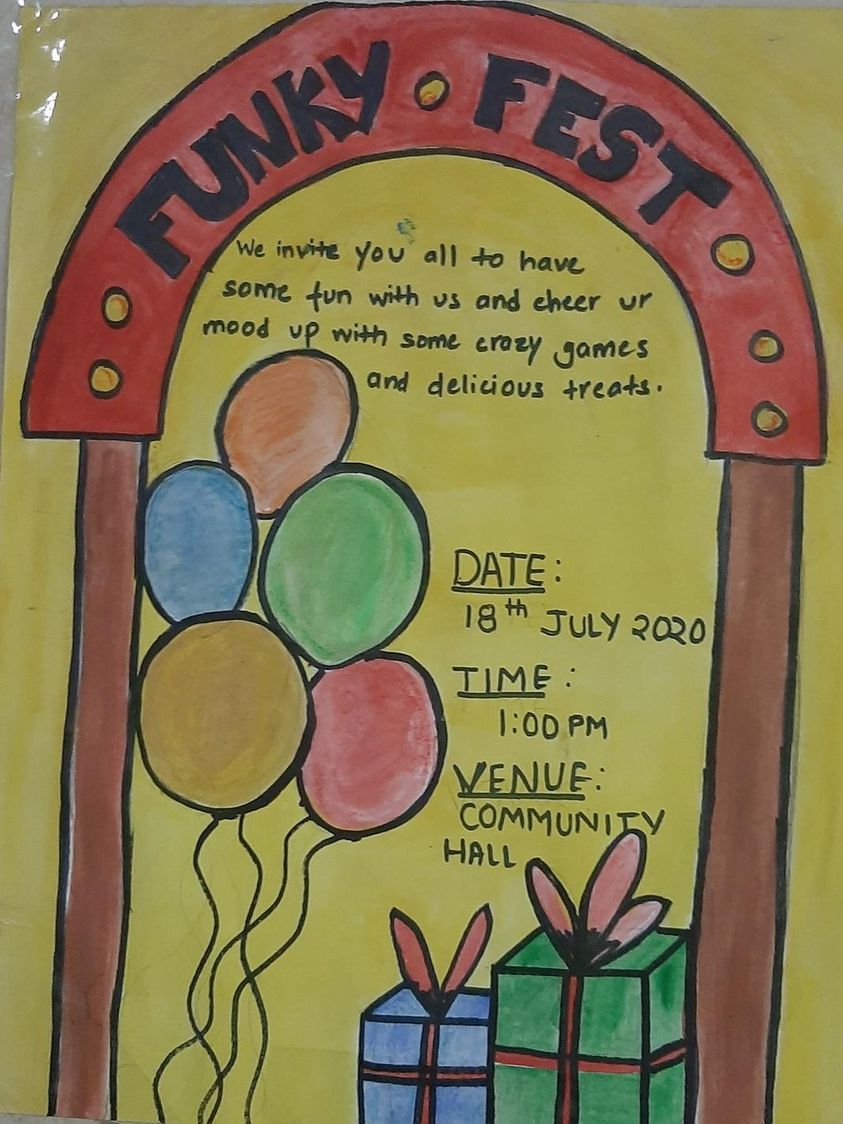 FUNKY FEST
We invite you all to have
some fun with us and cheer ur
mood up with some crazy games
and delicious treats.
DATE:
18th JULY 2020
TIME:
1:00 PM
VENUE:
COMMUNITY
HALL